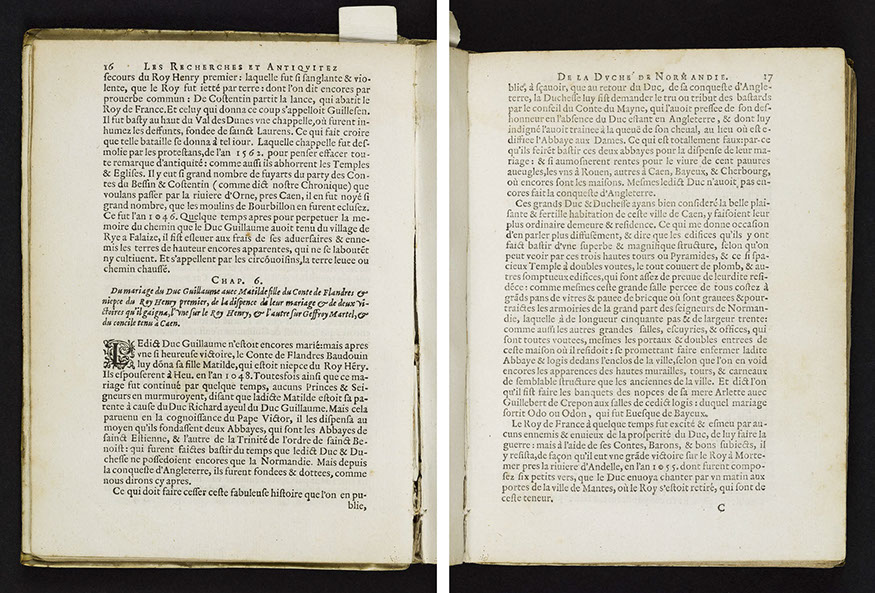 16 LES RECHERCHES ET ANTIQVITEZ
secours du Roy Henry premier: laquelle fut si sanglante & vio-
lente, que le Roy fut ietté par terre: dont l'on dit encores par
prouerbe commun: De Costentin partit la lance, qui abatit le
Roy de France. Et celuy qui donna ce coup s'appelloit Guillesen.
Il fut basty au haut du Val des Dunes vne chappelle, où furent in-
humez les deffunts, fondee de sainct Laurens. Ce qui fait croire
que telle bataille se donna à tel iour. Laquelle chappelle fut des-
molie par les protestans, de l'an 1562. pour penser effacer tou-
te remarque d'antiquité: comme aussi ils abhorrent les Temples
& Eglises. Il y eut si grand nombre de fuyarts du party des Con-
tes du Bessin & Costentin (comme dict nostre Chronique) que
voulans passer par la riuiere d'Orne, pres Caen, il en fut noyé si
grand nombre, que les moulins de Bourbillon en furent eclusez.
Ce fut l'an 1046. Quelque temps apres pour perpetuer la me-
moire du chemin que le Duc Guillaume auoit tenu du village de
Rye a Falaize, il fist esleuer aux frais de ses aduersaires & enne-
mis les terres de hauteur encores apparentes, qui ne se laboutẽt
ny cultiuent. Et s'appellent par circõuoisins, la terre leuee ou
chemin chaussé.
CHAP. 6.
Du mariage du Duc Guillaume auec Matilde fille du Conte de Flandres &
niepce du Roy Henry premier, de la dispence de leur mariage & de deux vi-
ctoires qu'il gaigna, l'vne sur le Roy Henry, & l'autre sur Geffrey Martel, &
du concile tenu à Caen.
LEdict Duc Guillaume n'estoit encores marié: mais apres
vne si heureuse victoire, le Conte de Flandres Baudouin
luy dõna sa fille Matilde, qui estoit niepce du Roy Hẽry.
Ils espouserent à Heu. en l'an 1048. Toutesfois ainsi que ce ma-
riage fut continué par quelque temps, aucuns Princes & Sei-
gneurs en murmuroyent, disant que ladicte Matilde estoit sa pa-
rente à cause du Duc Richard ayeul du Duc Guillaume. Mais cela
paruenu en la cognoissance du Pape Victor, il les dispensa au
moyen qu'ils fondassent deux Abbayes, qui sont les Abbayes de
sainct Estienne, & l'autre de la Trinité de l'ordre de sainct Be-
noist: qui furent faictes bastir du temps que ledict Duc & Du-
chesse ne possedoient encores que la Normandie. Mais depuis
la conqueste d'Angleterre, ils furent fondees & dottees, comme
nous dirons cy apres.
Ce qui doit faire cesser ceste fabuleuse histoire que l'on en pu-
blie,
DE LA DVCHE' DE NORMANDIE. 17
blie, à sçauoir, que au retour du Duc, de sa conqueste d'Angle-
terre, la Duchesse luy fist demander le tru ou tribut des bastards
par le conseil du Conte du Mayne, qui l'auoit pressee de son des-
honneur en l'absence du Duc estant en Angleterre, & dont luy
indigné l'auoit trainee à la queuë de son cheual, au lieu où est e-
diffiee l'Abbaye aux Dames. Ce qui est totallement faux: par-ce
qu'ils feirẽt bastir ces deux abbayes pour la dispense de leur ma-
riage: & si aumosnerent rentes pour le viure de cent pauures
aueugles, les vns à Rouen, autres à Caen, Bayeux, & Cherbourg,
où encores sont les maisons. Mesmes ledict Duc n'auoit pas en-
cores fait la conqueste d'Angleterre.
Ces grands Duc & Duchesse ayans bien consideré la belle plai-
sante & fertille habitation de ceste ville de Caen, y faisoient leur
plus ordinaire demeure & residence. Ce qui me donne occasion
d'en parler plus diffusément, & dire que les edifices qu'ils y ont
faict bastir d'vne superbe & magnifique structure, selon qu'on
peut veoir par ces trois hautes tours ou Pyramides, & ce si spa-
cieux Temple à doubles voutes, le tout couuert de plomb, & au-
tres somptueux edifices, qui sont assez de preuue de leurdite resi-
dẽce: comme mesmes ceste grande salle percee de tous costez à
grãds pans de vitres & pauee de bricque où sont grauees & pour-
traictes les armoiries de la grand part des seigneurs de Norman-
die, laquelle à de longueur cinquante pas & de largeur trente:
comme aussi les autres grandes salles, escuyries, & offices, qui
sont toutes voutees, mesmes les portaux & doubles entrees de
ceste maison où il residoit: se promettant faire enfermer ladite
Abbaye & logis dedans l'enclos de la ville, selon que l'on en void
encores les apparences des hautes murailles, tours, & carneaux
de semblable structure que les anciennes de la ville. Et dict l'on
qu'il fist faire les banquets des nopces de sa mere Arlette auec
Guillebert de Crepon aux salles de cedict logis: duquel mariage
sortit Odo ou Odon, qui fut Euesque de Bayeux.
Le Roy de France à quelque temps fut excité & esmeu par au-
cuns ennemis & enuieux de la prosperité du Duc, de luy faire la
guerre: mais à l'aide de ses Contes, Barons, & bons subiects, il
y resista, de façon qu'il eut vne grãde victoire sur le Roy à Morte-
mer pres la riuiere d'Andelle, en l'an 1055. dont furent compo-
sez six petits vers, que le Duc enuoya chanter par vn matin aux
portes de la ville de Mantes, où le Roy s'estoit retiré, qui sont de
ceste teneur.
C